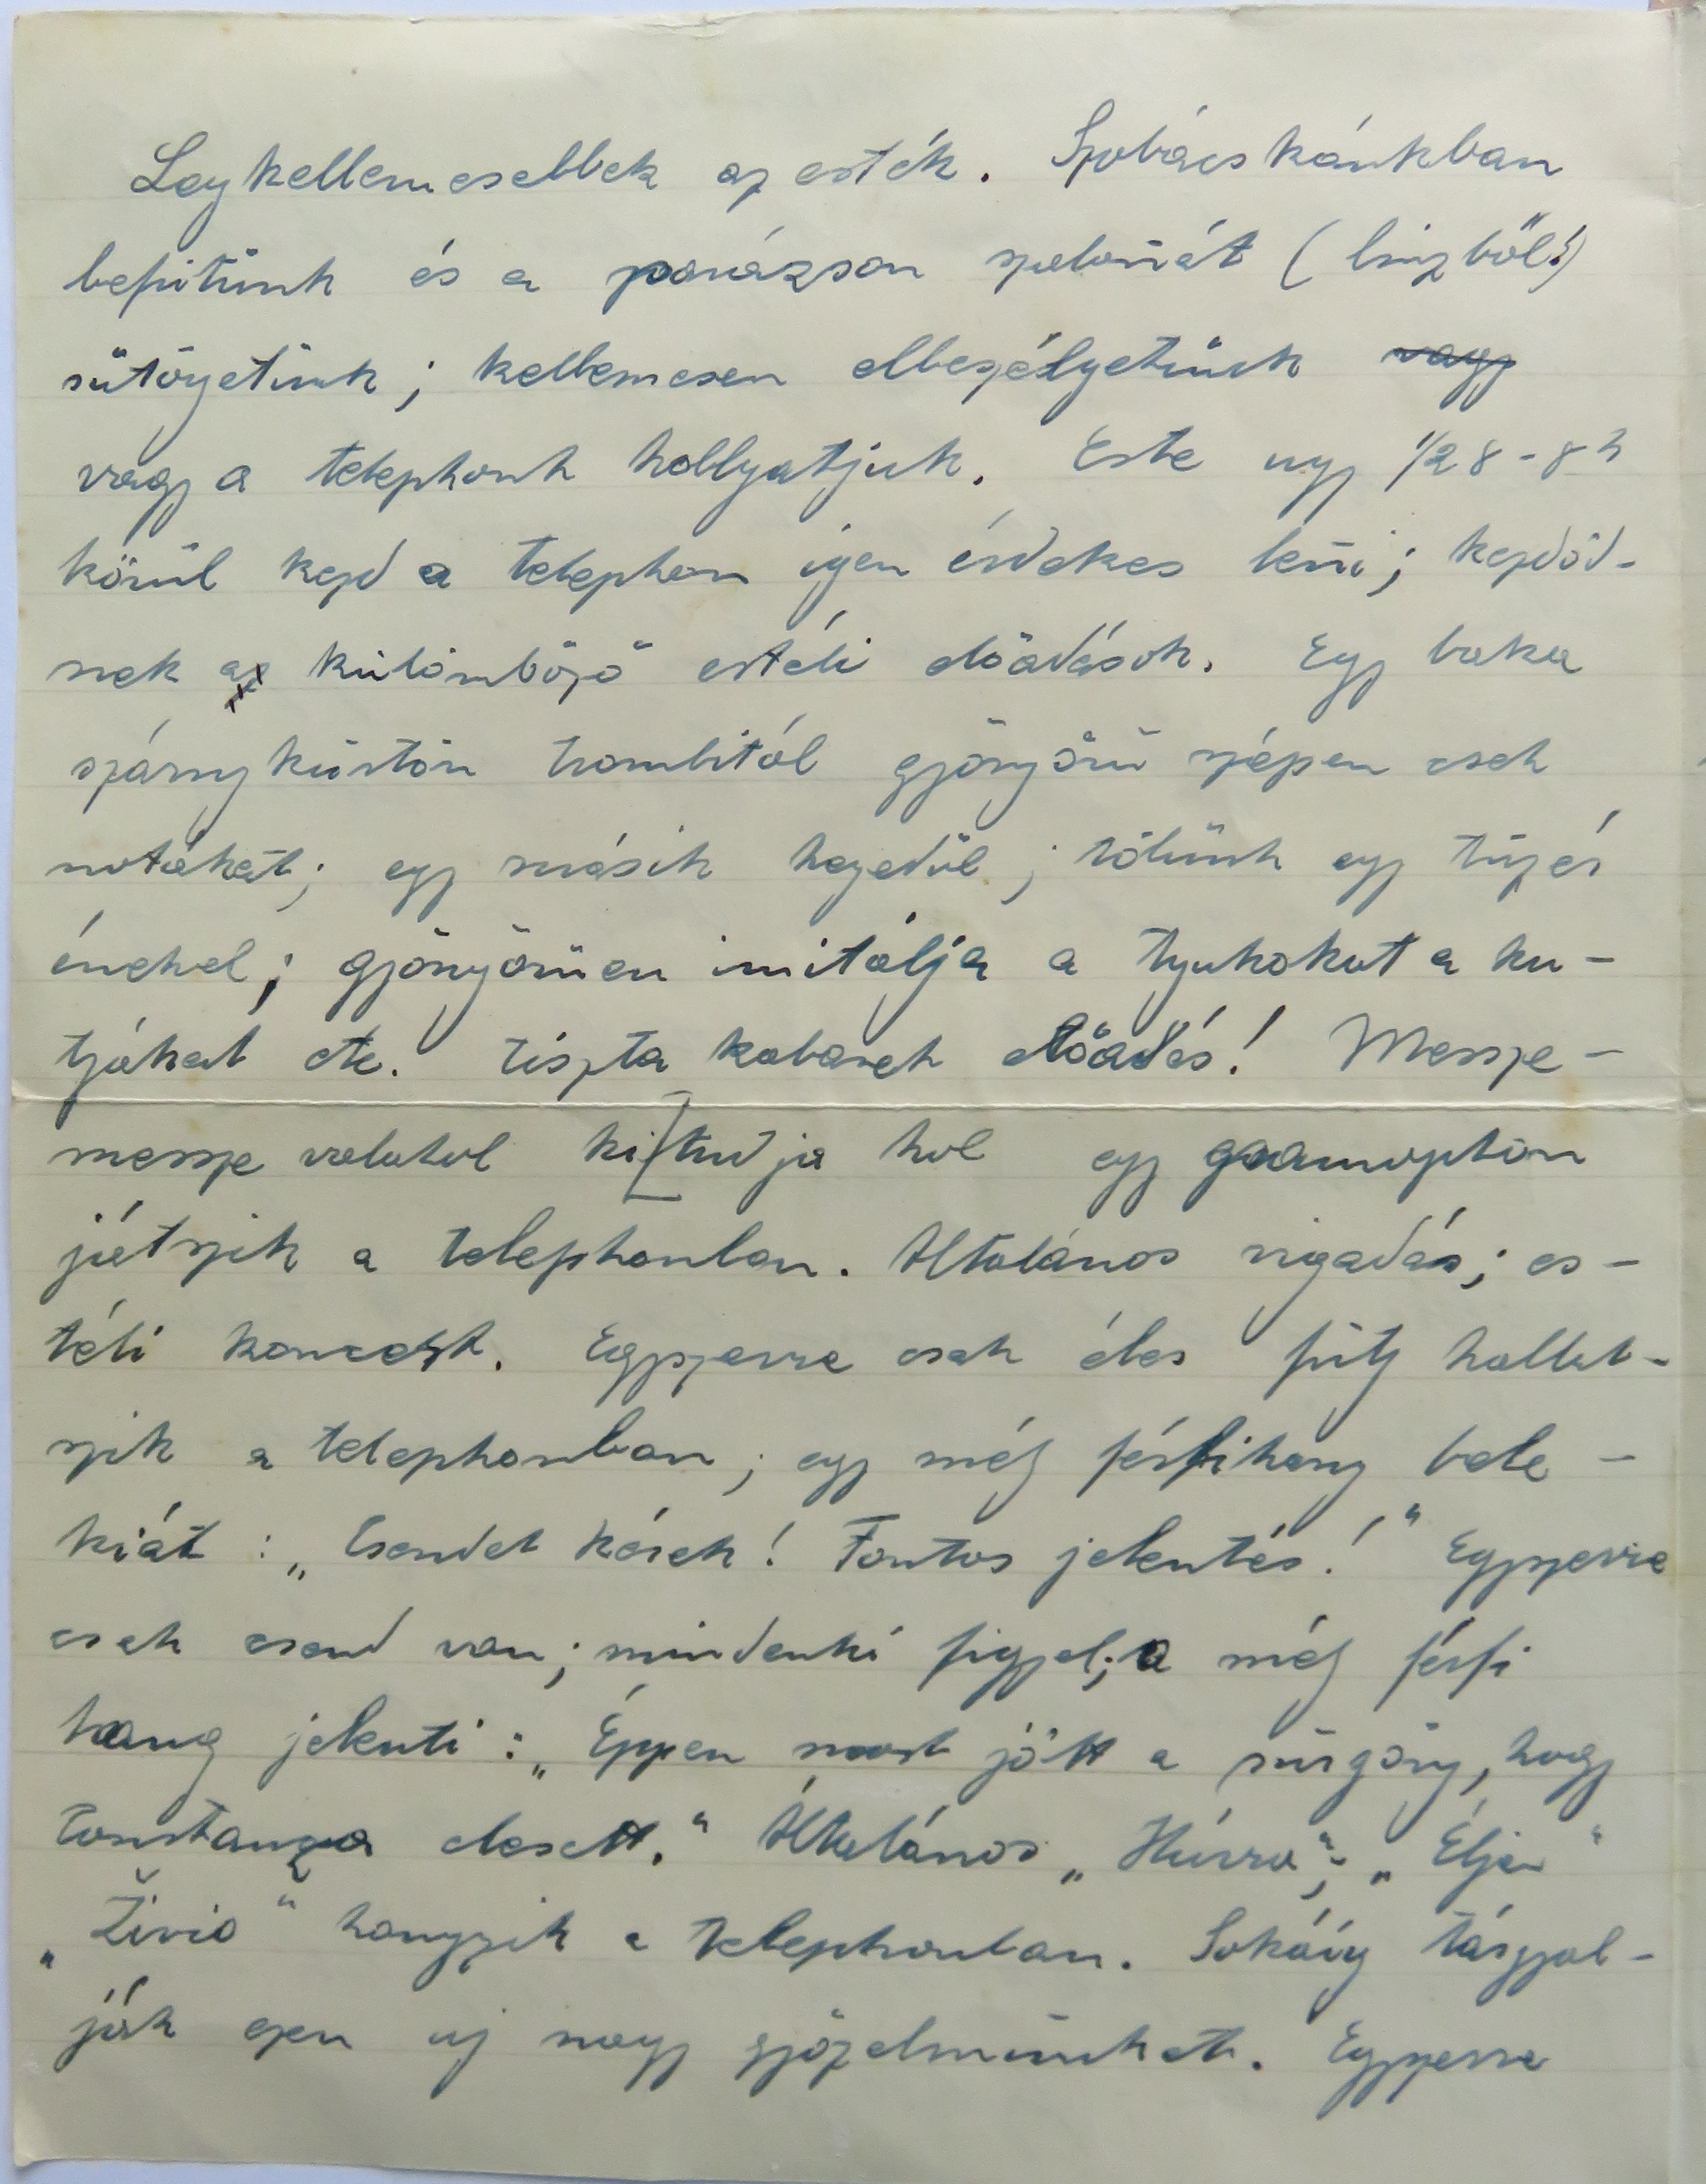 Legkellemesebbek az esték. Szobácskánkban
befütünk és a parázson szalonát (linzből!)
sütögetünk; kellemesen elbeszélgetünk vagy
vagy a telephont hallgatjuk. Este ugy 1/2 8 - 8 h
körül kezd a telephon igen érdekes leni; kezdőd-
nek az külömböző estéli előadások. Egy baka
szárnykürtön trombitál gyönyörü szépen cseh
notákat; egy másik hegedül; tőlünk egy tüzér
énekel; gyönyörüen imitálja a tyukokat a ku-
tyákat etc. Tiszta kabarett előadás! Messze-
messze valahol ki tudja hol egy gramopfon
játszik a telephonban. Általános vigadás; es-
téli koncert. Egyszerre csak éles fütty hallat-
szik a telephonban; egy mély férfihang bele-
kiát: „Csendet kérek! Fontos jelentés!" Egyszerre
csak csend van; mindenki figyel; a mély férfi
hang jelenti: „Éppen most jött a sürgöny, hogy
Constanza elesett." Általános „Hurra"; „Éljen"
„Živio" hangzik a telephonban. Sokáig tárgyal-
ják ezen uj nagy győzelmünket. Egyszerre